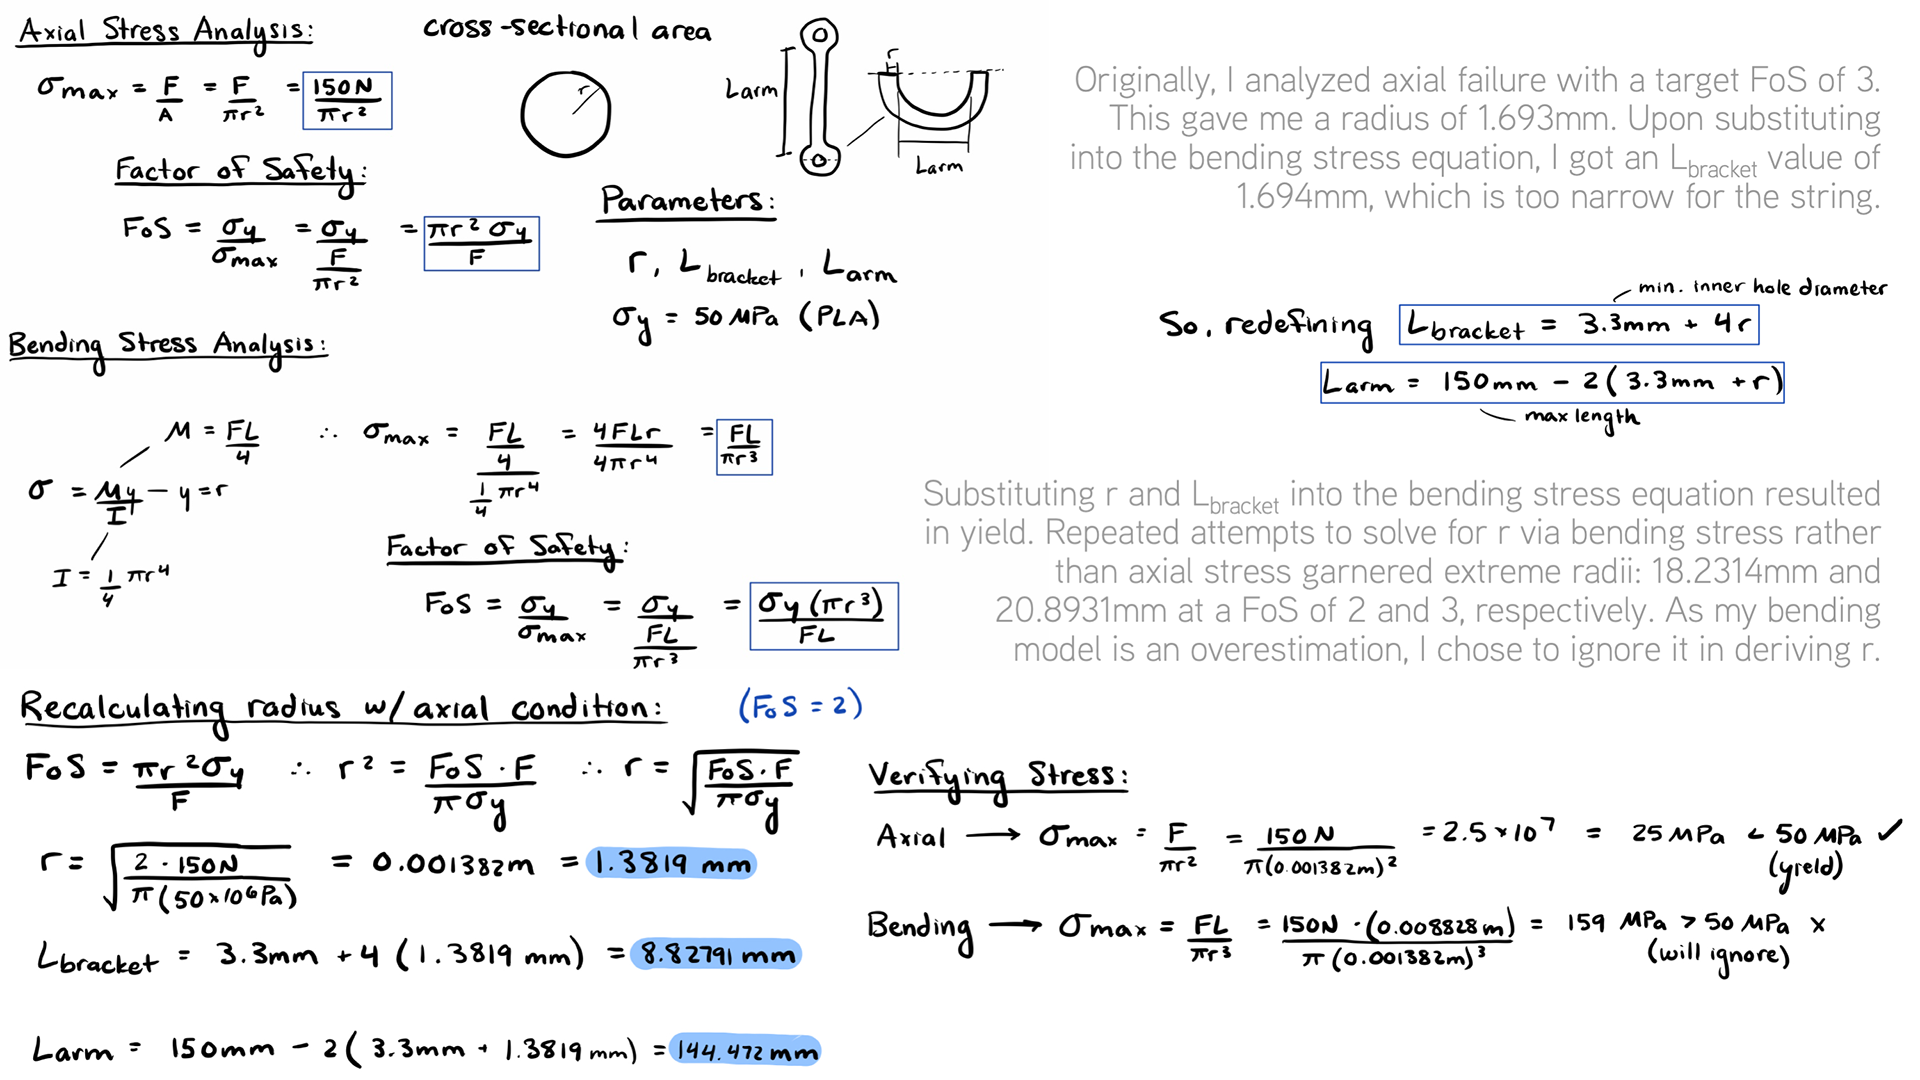 Axial Stress Analysis:
σmax = F/A = F/πr² = 150N/πr²
Factor of Safety:
FoS = σy/σmax = σy/(F/πr²) = πr²σy/F
cross-sectional area
r
Larm
r
Larm
Parameters:
r, Lbracket, Larm
σy = 50 MPa (PLA)
Originally, I analyzed axial failure with a target FoS of 3.
This gave me a radius of 1.693mm. Upon substituting
into the bending stress equation, I got an Lbracket value of
1.694mm, which is too narrow for the string.
min. inner hole diameter
So, redefining Lbracket = 3.3mm + 4r
Larm = 150mm - 2(3.3mm + r)
max length
Bending Stress Analysis:
M = FL/4 ∴ σmax = (FL/4)/(1/4 πr⁴) = 4FLr/4πr⁴ = FL/πr³
σ = My/I - y = r
I = 1/4 πr⁴
Factor of Safety:
FoS = σy/σmax = σy/(FL/πr³) = σy(πr³)/FL
Substituting r and Lbracket into the bending stress equation resulted
in yield. Repeated attempts to solve for r via bending stress rather
than axial stress garnered extreme radii: 18.2314mm and
20.8931mm at a FoS of 2 and 3, respectively. As my bending
model is an overestimation, I chose to ignore it in deriving r.
Recalculating radius w/ axial condition: (FoS = 2)
FoS = πr²σy/F ∴ r² = FoS·F/πσy ∴ r = √(FoS·F/πσy)
r = √(2·150N/π(50×10⁶Pa)) = 0.001382m = 1.3819 mm
Lbracket = 3.3mm + 4(1.3819 mm) = 8.82791 mm
Larm = 150mm - 2(3.3mm + 1.3819 mm) = 144.472 mm
Verifying Stress:
Axial → σmax = F/πr² = 150N/π(0.001382m)² = 2.5×10⁷ = 25 MPa < 50 MPa ✓
(yield)
Bending → σmax = FL/πr³ = 150N·(0.008828m)/π(0.001382m)³ = 159 MPa > 50 MPa x
(will ignore)